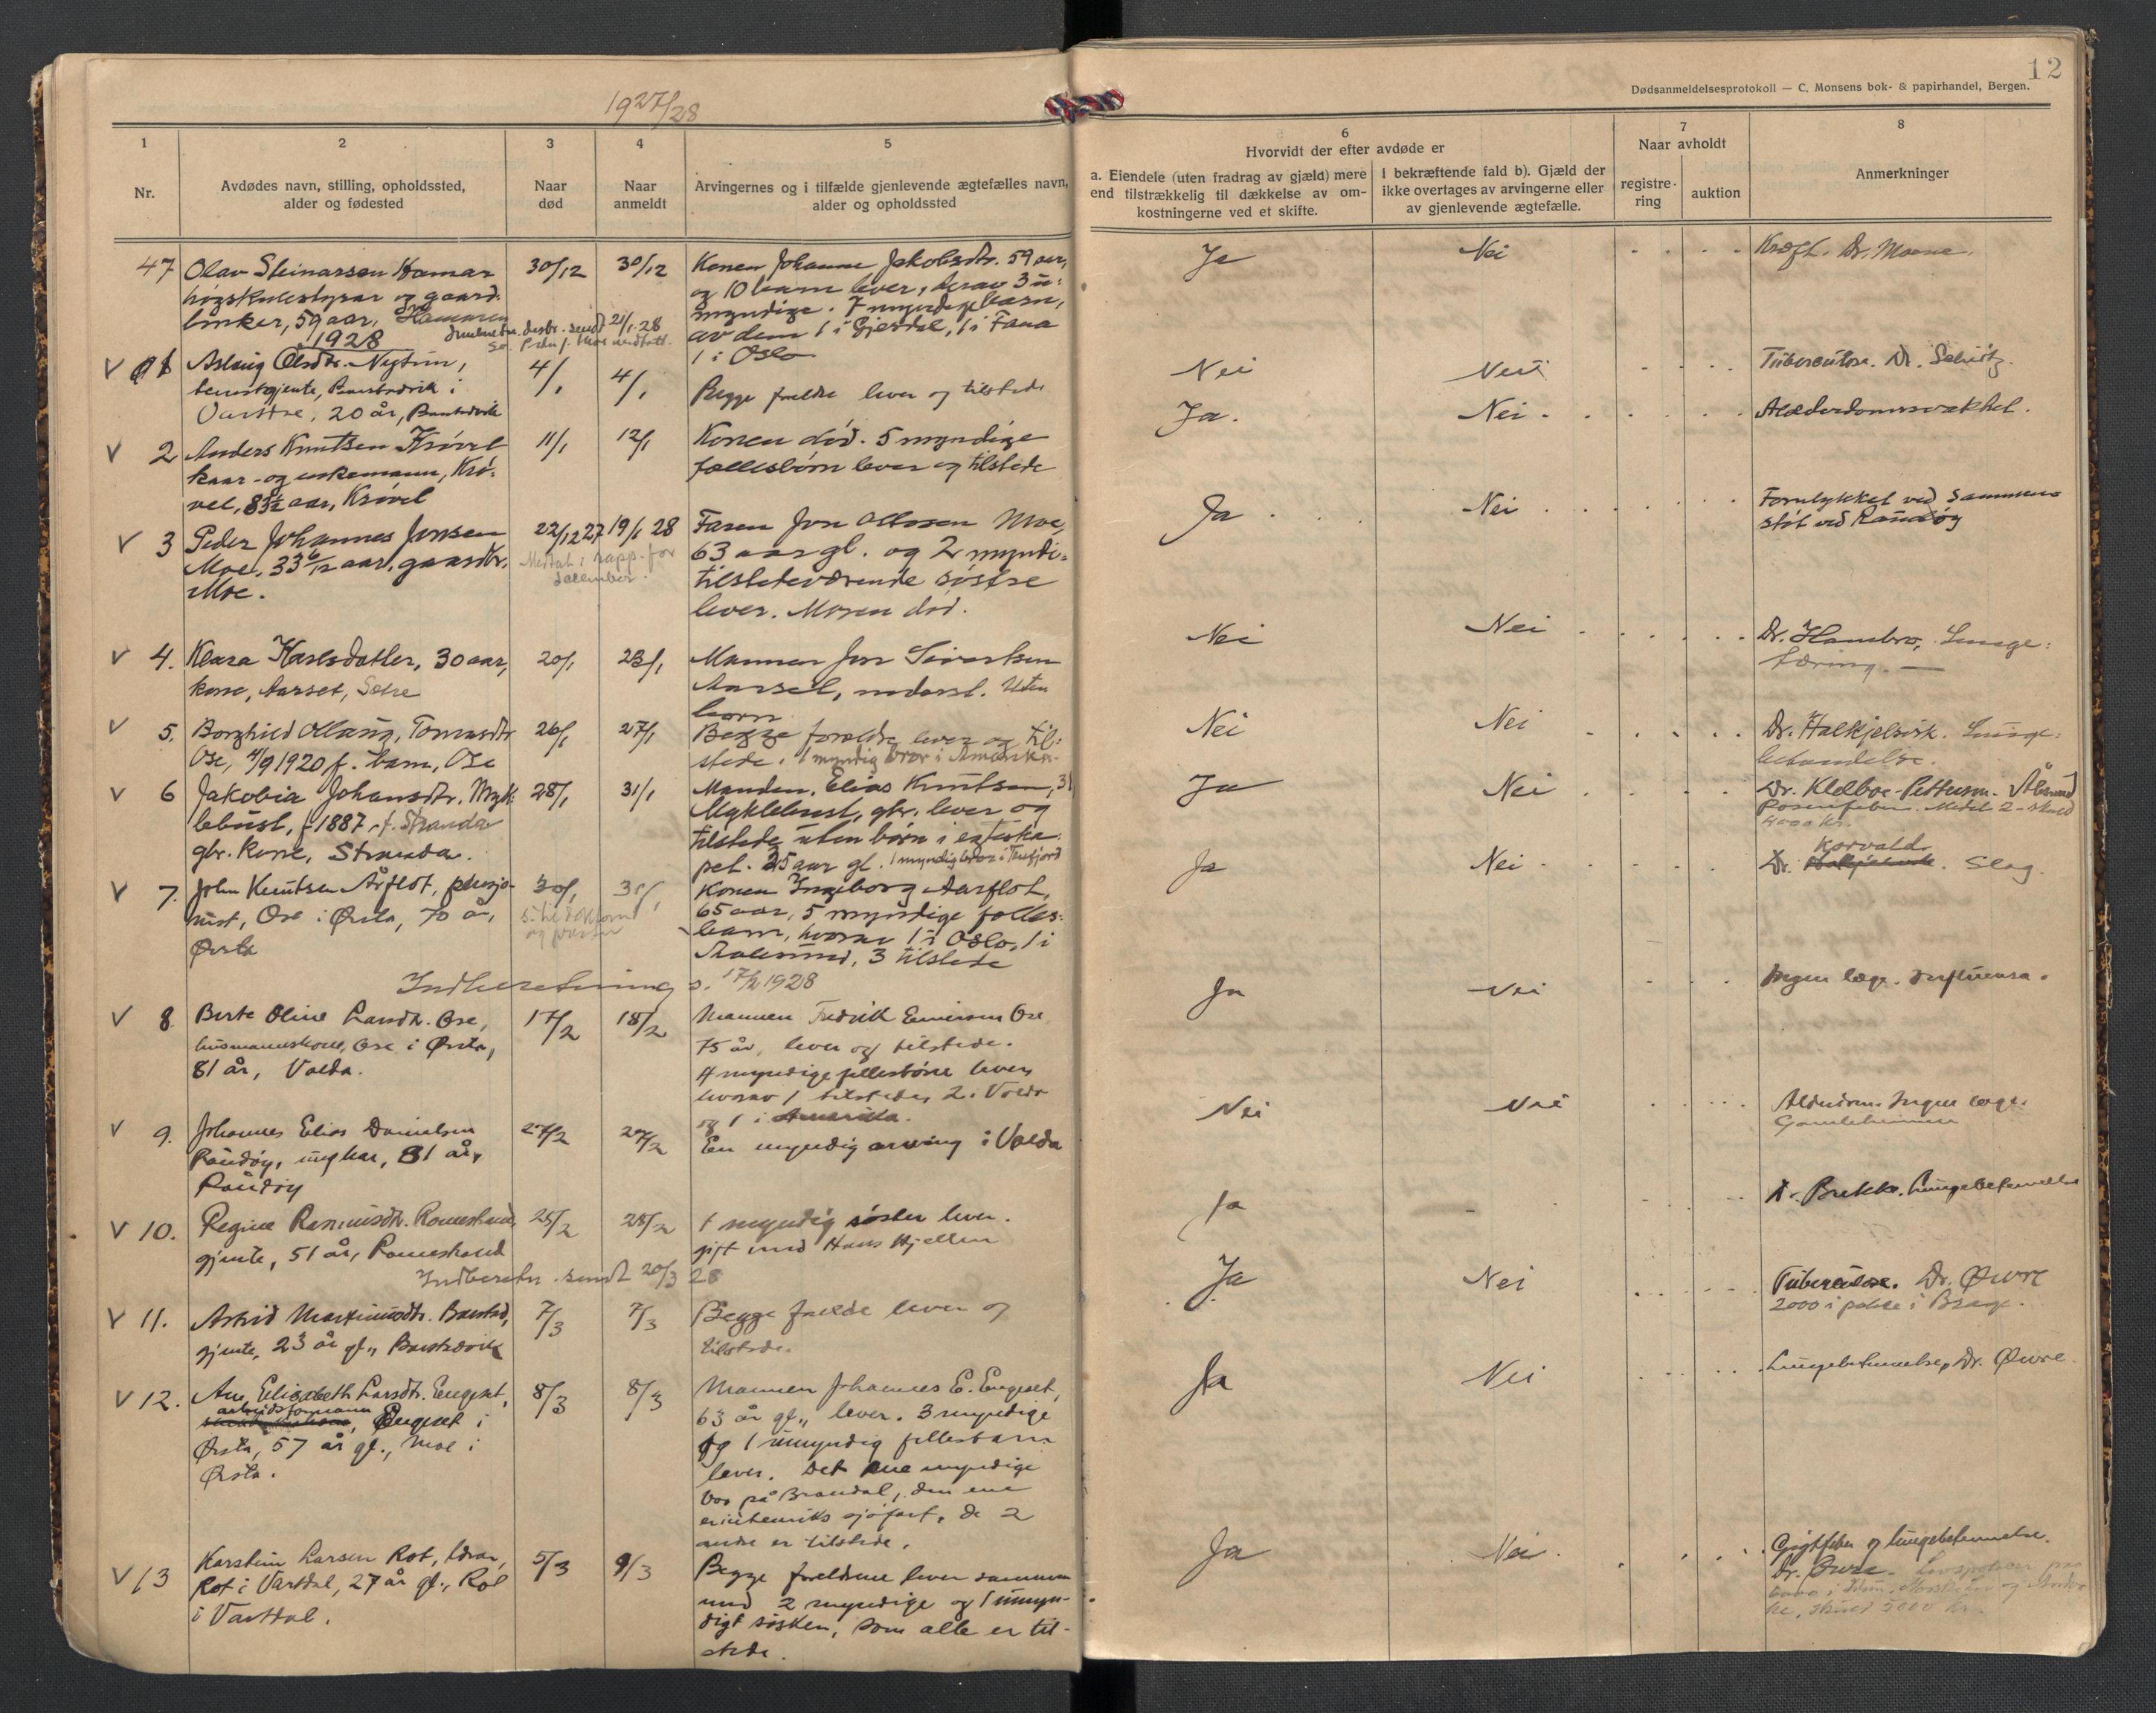 1927/28
12
Dødsanmeldelsesprotokoll — C. Monsens bok- & papirhandel, Bergen.
1
2
3
4
5
6
7
8
Nr.
Avdødes navn, stilling, opholdssted,
alder og fødested
Naar
død
Naar
anmeldt
Arvingernes og i tilfælde gjenlevende ægtefælles navn,
alder og opholdssted
Hvorvidt der efter avdøde er
a. Eiendele (uten fradrag av gjæld) mere
end tilstrækkelig til dækkelse av om-
kostningerne ved et skifte.
I bekræftende fald b). Gjæld der
ikke overtages av arvingerne eller
av gjenlevende ægtefælle.
Naar avholdt
registre-
ring
auktion
Anmerkninger
47
Olav Steinarsen Hamar
høgskulestyrar og gaard-
bruker, 59 aar, Hamaren
30/12
30/12
Konen Johanne Jakobsdtr. 59 aar,
og 10 barn lever, herav 3 u-
myndige. 7 myndige barn,
av dem 1 i Gjesdal, 1 i Fana
1 i Oslo
Ja
Nei
Kræft. Dr. Moene.
1928
V 1
Aslaug Olsdtr. Nupen,
tenestgjente, Barstadvik i
Vartdal, 20 år, Barstadvik
4/1
4/1
Begge foreldre lever og tilstede
Nei
Nei
Tuberculose. Dr. Schütz.
V 2
Anders Knutsen Krøvel
kaar- og enkemann, Krø-
vel, 83½ aar, Krøvel
11/1
12/1
Konen død. 5 myndige
fællesbørn lever og tilstede
Ja.
Nei
Alderdomssvakhet.
V 3
Peder Johannes Jonsen
Moe, 33 6/12 aar, gaardbr.
Moe.
22/12 27
19/1 28
Medtat i rapp. for
december.
Faren Jon Olssen Moe,
63 aar gl. og 2 myndi-
tilstedeværende søstre
lever. Moren død.
Ja
Nei
Forulykket ved sammen-
støt ved Raudøy
V 4.
Klara Karlsdatter, 30 aar,
kone, Aarset, Sætre
20/1
23/1
Mannen Jon Sivertsen
Aarset, Uten
barn
Nei
Nei
Dr. Hambro, Lunge-
tæring. —
V 5.
Borghild Olaug, Tomasdtr
Ose, 4/9 1920 f. barn, Ose
26/1
27/1
Begge foreldre lever og til-
stede. 1 myndig bror i Amerika
Nei
Nei
Dr. Halkjelsvik. Lunge-
betændelse.
V 6
Jakobia Johansdtr. Myk-
lebust, f. 1887 f. Stranda
gbr. kone, Stranda.
28/1
31/1
Manden, Elias Knutsen,
Myklebust, gbr. lever og
tilstede uten børn i egteska-
pet. 35 aar gl. 1 myndig bror i Tresfjord
Ja
Nei
Dr. Klæboe-Pettersen. Ålesund
Rosenfeber.
4000 kr.
V 7.
John Knutsen Årflot, pensjo-
nist, Ose i Ørsta, 70 år,
Ørsta
30/1
31/1
Konen Ingeborg Aarflot,
65 aar, 5 myndige felles-
barn, hvorav 1 i Oslo, 1 i
Aalesund, 3 tilstede
Ja
Nei
Korvald.
Dr. Halkjelsvik. Slag.
Indberetning s. 17/2 1928
V 8
Berte Oline Larsdtr. Ose,
husmannskone, Ose i Ørsta,
81 år, Volda.
17/2
18/2
Mannen Fredrik Ose
75 år, lever og tilstede.
4 myndige fellesbørn lever,
hvorav 1 tilstede, 2 i Volda
og 1 i Amerika.
Ja
Nei
Ingen læge. Influensa.
V 9.
Johannes Elias Danielsen
Raudøy, ungkar, 81 år,
Raudøy
27/2
27/2
En myndig arving i Volda
Nei
Nei
Alderdom. Ingen læge.
Gamleheimen
V 10.
Regine Rasmusdtr. Romestrand,
gjente, 51 år, Romestrand
25/2
28/2
1 myndig søster lever.
gift med Hans Hjellen
Ja
-
Dr. Brekke. Lungebetennelse
Indberetn. sendt 20/3 28
V 11.
Astrid Martinusdtr. Barstad,
gjente, 23 år gl., Barstadvik
7/3
7/3
Begge foreldre lever og
tilstede.
Ja
Nei
Tuberculose. Dr. Øvre
2000 i polise i Brage.
V 12.
Ane Elisabeth Larsdtr. Engeset,
arbeidsformann
Engeset i
Ørsta, 57 år gl., Moe i
Ørsta.
8/3
8/3
Mannen Johannes E. Engeset,
63 år gl., lever. 3 myndige
og 1 umyndig fellesbarn
lever. Det ene myndige
bor på Brandal, den ene
er i utenriks sjøfart, de 2
andre er tilstede.
Ja
Nei
Lungebetennelse, Dr. Øvre.
V 13
Karsten Larsen Rot,
Rot i Vartdal, 27 år gl., Rot
i Vartdal.
5/3
9/3
Begge foreldrene lever sammen
med 2 myndige og 1 umyn-
digt søsken, som alle er til-
stede.
Ja
Nei
Gigtfeber og lungebetennelse.
Dr. Øvre.